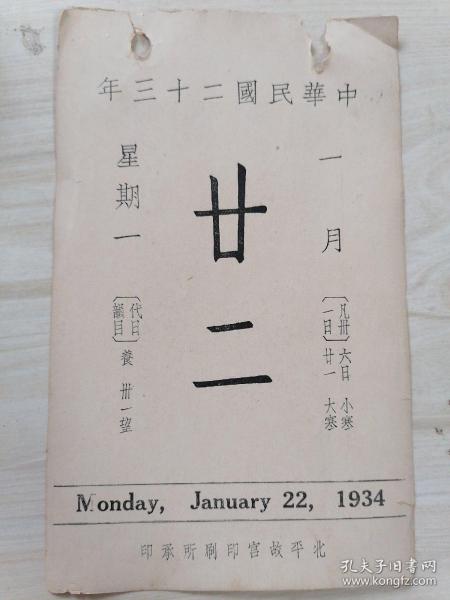 中華民國二十三年
一月
〔凡卅一日〕
六日 小寒
廿一 大寒
廿二
星期一
〔代日韻目〕
養 卅一望
Monday, January 22, 1934
北平故宮印刷所承印
孔夫子旧书网
www.kongfz.com